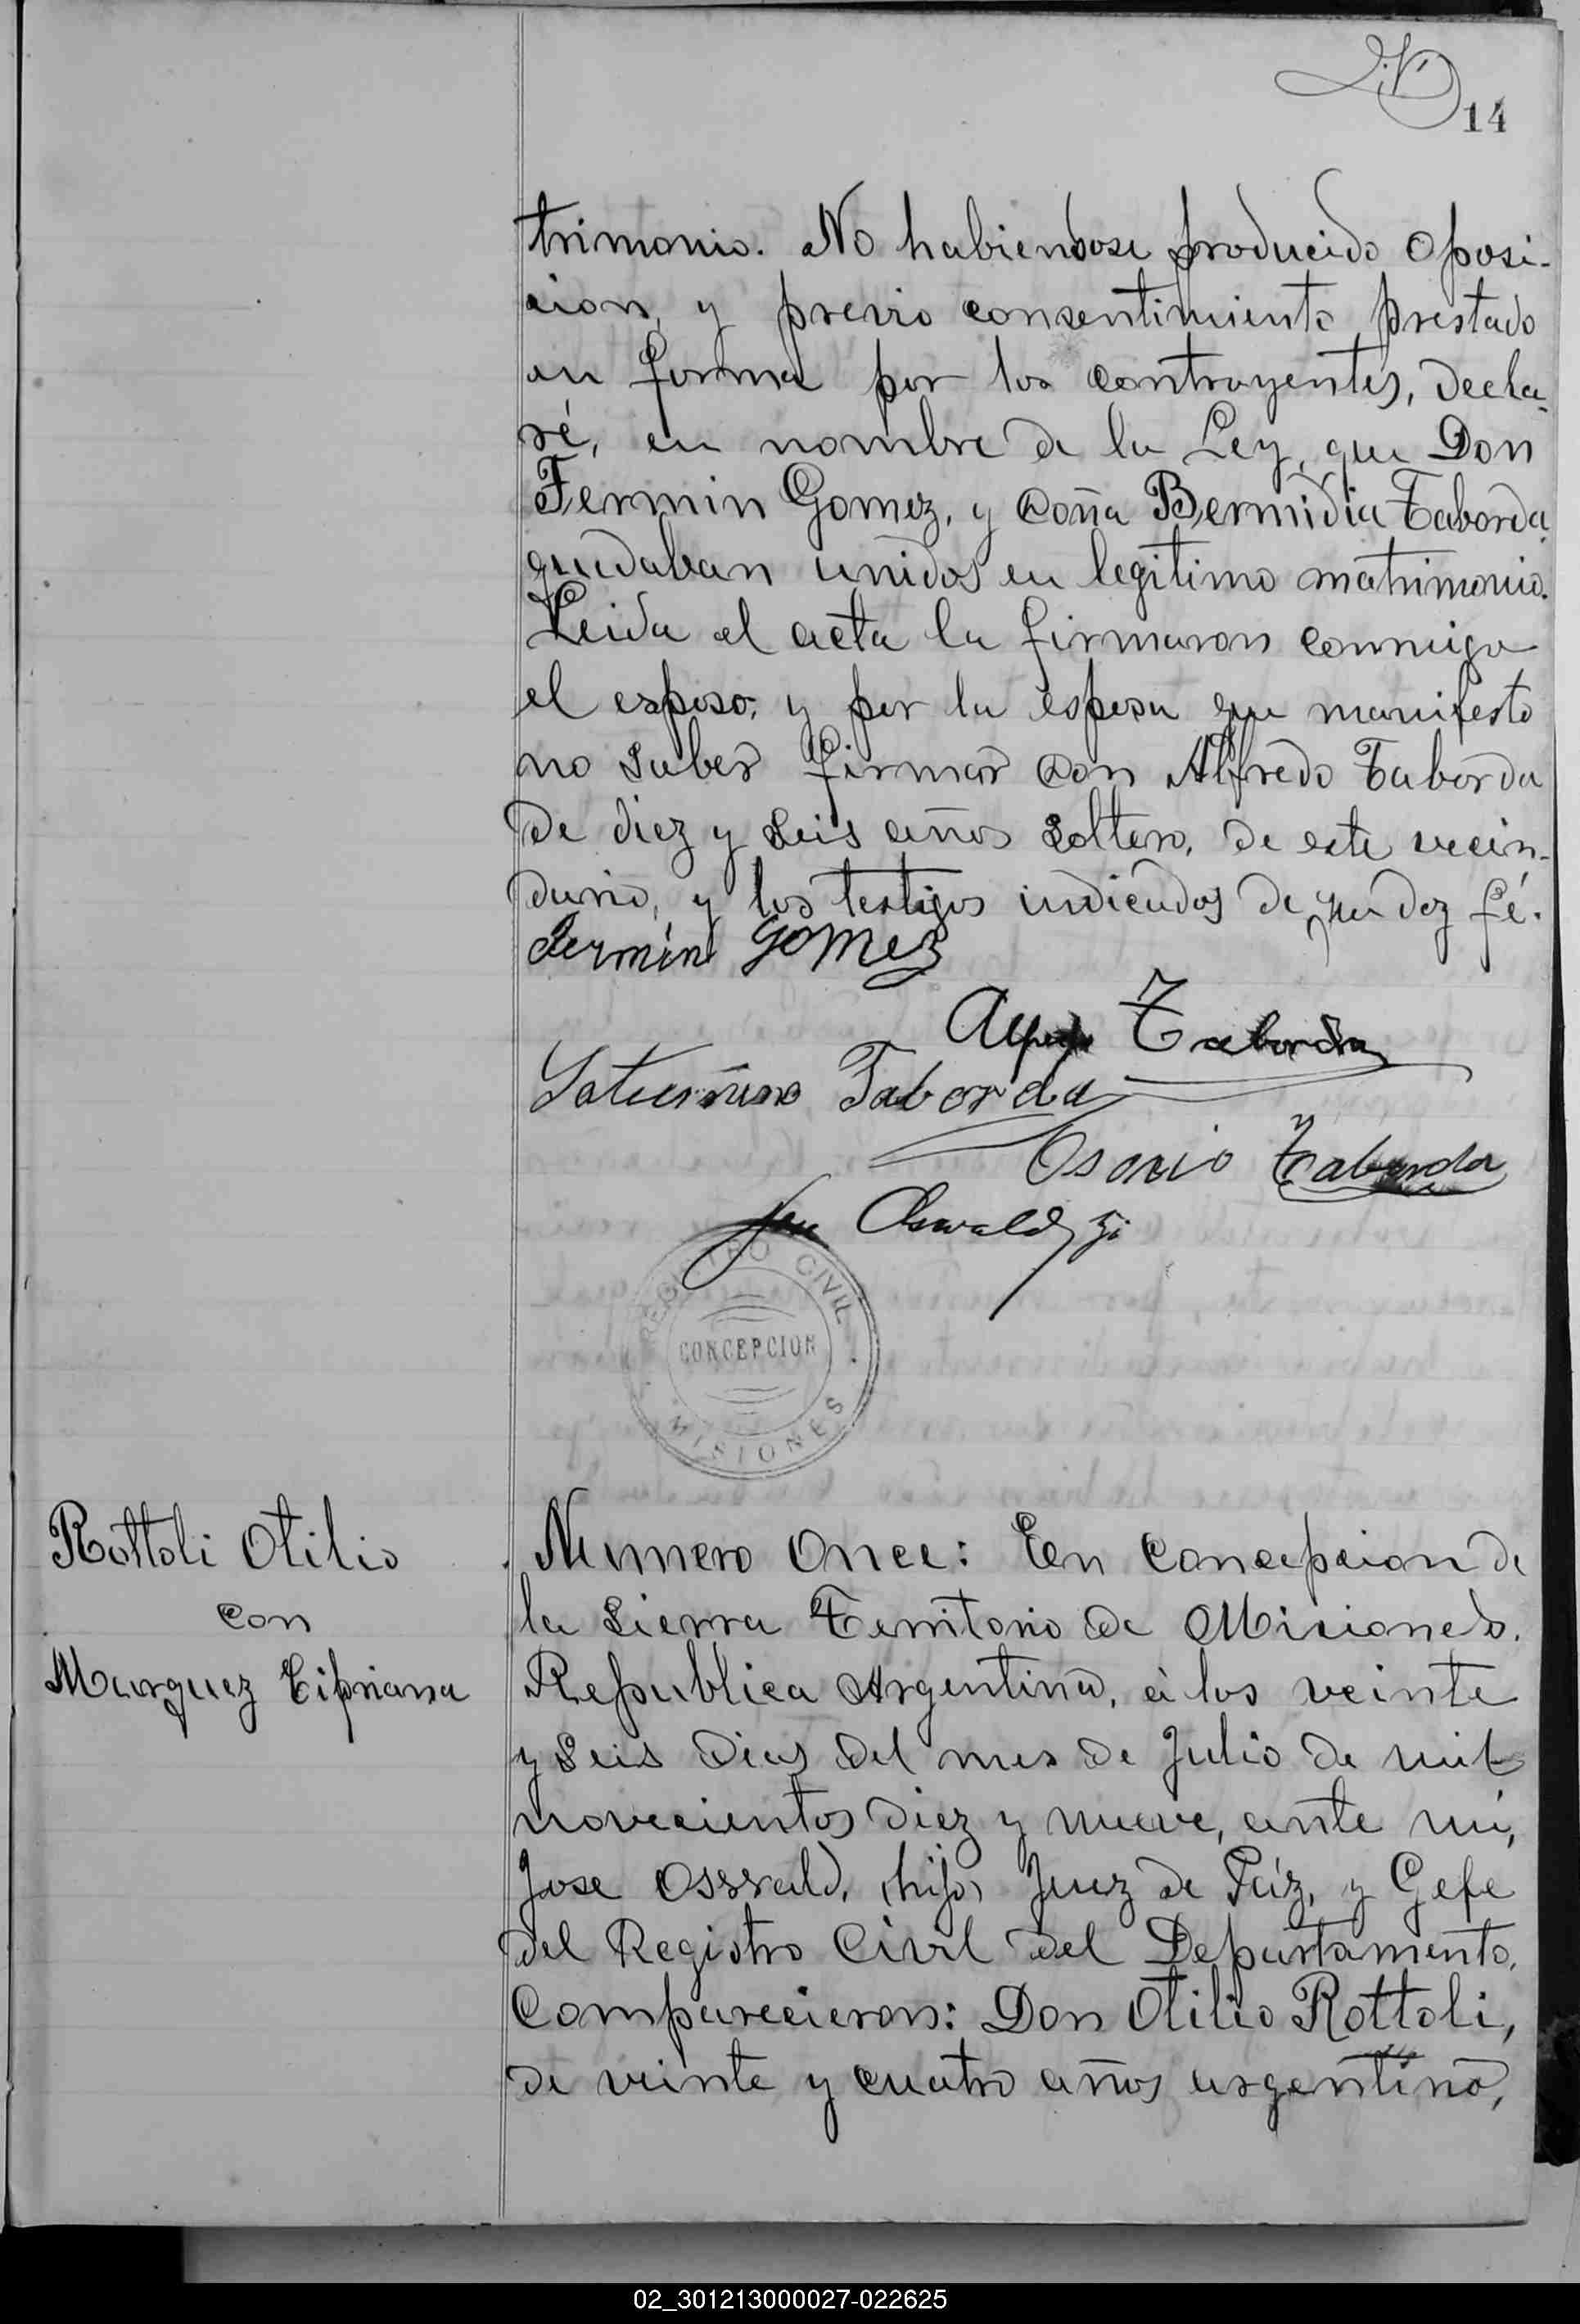 14
trimonio. No habiendose producido oposi-
cion, y previo consentimiento prestado
en forma por los contrayentes, decla-
ré, en nombre de la Ley, que Don
Fermin Gomez, y doña Bermidia Taborda
quedaban unidos en legitimo matrimonio.
Leida el acta la firmaron conmigo
el esposo, y por la esposa que manifesto
no saber firmar Don Alfredo Taborda
de diez y seis años soltero, de este vecin-
dario, y los testigos indicados de que doy fé.
Fermín Gomez
Taborda
Saturnino Taborda
Osorio Taborda
Oswald
REGISTRO CIVIL
CONCEPCION
MISIONES
Rottoli Otilio
con
Marquez Cipriana
Numero Once: En Concepcion de
la Sierra Territorio de Misiones.
Republica Argentina, á los veinte
y seis dias del mes de Julio de mil
novecientos diez y nueve, ante mí,
Jose Oswald, (hijo) Juez de Páz, y Gefe
del Registro Civil del Departamento.
Comparecieron: Don Otilio Rottoli,
de veinte y cuatro años argentino,
02_301213000027-022625